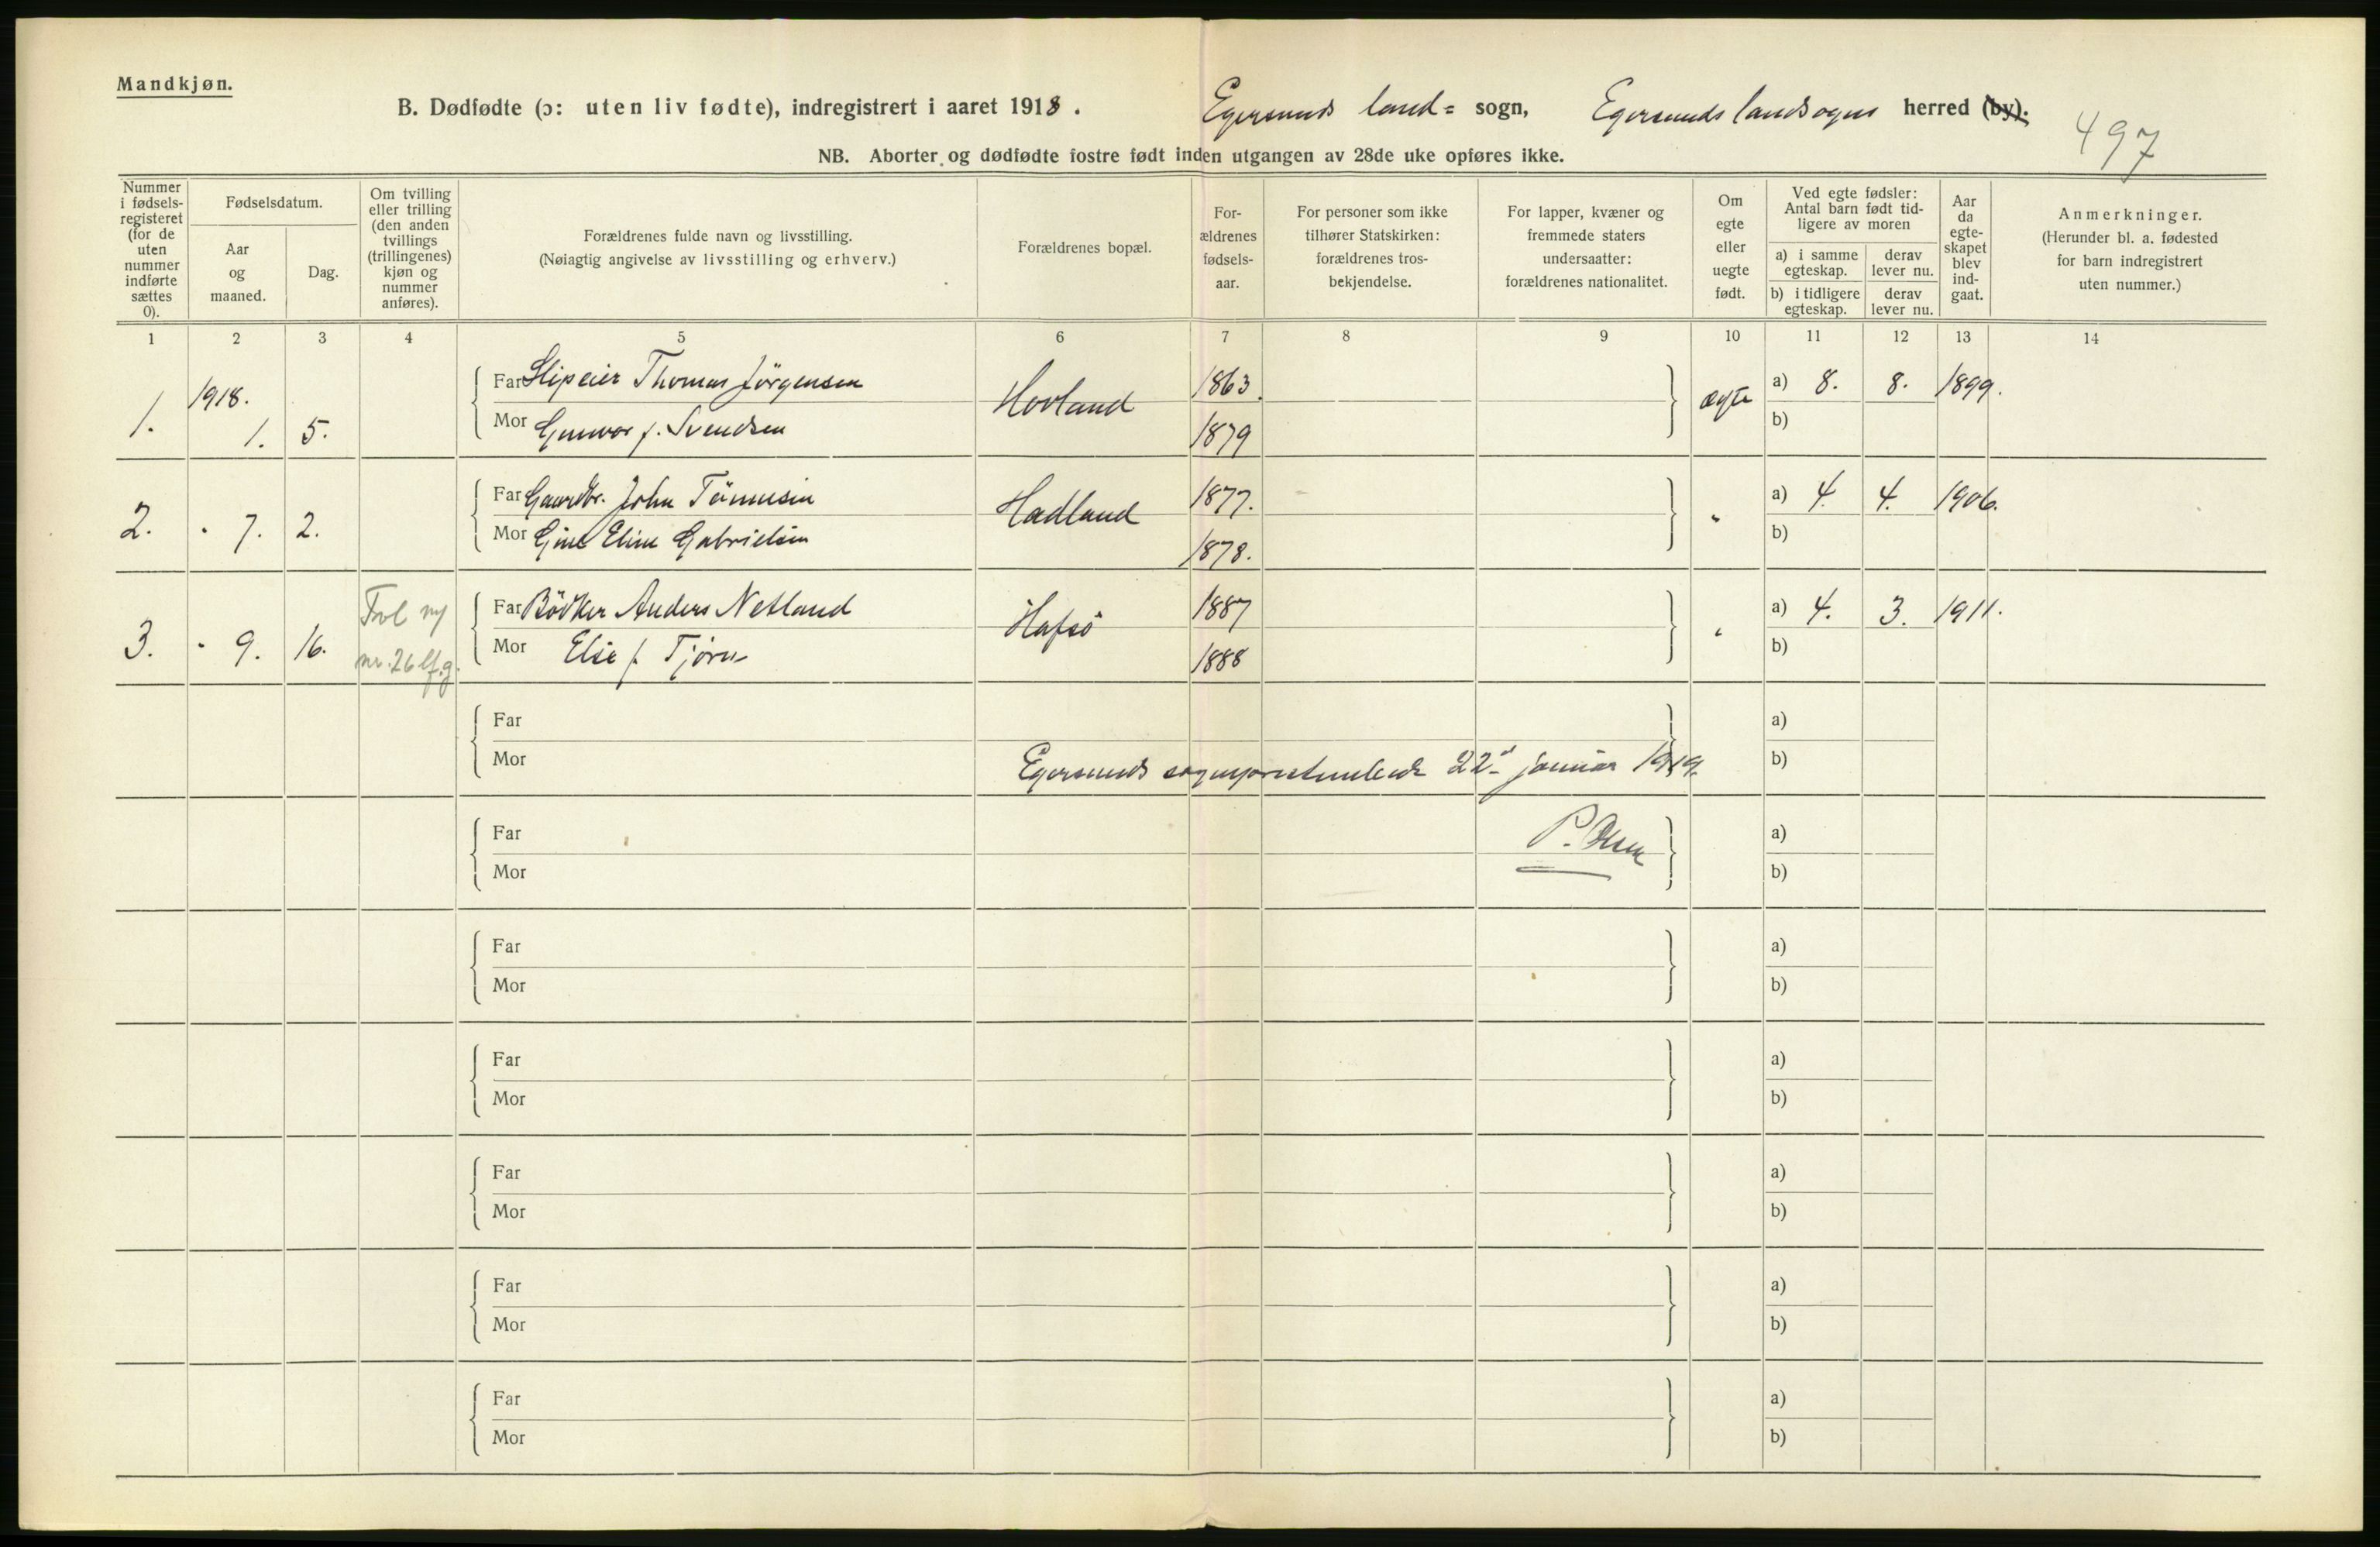 Mandkjøn.
B. Dødfødte (ɔ: uten liv fødte), indregistrert i aaret 1918. Egersunds land= sogn, Egersunds landsogns herred (by).
497
NB. Aborter og dødfødte fostre født inden utgangen av 28de uke opføres ikke.
Nummer i fødsels-registeret (for de uten nummer indførte sættes 0).
Fødselsdatum.
Aar og maaned.
Dag.
Om tvilling eller trilling (den anden tvillings (trillingenes) kjøn og nummer anføres).
Forældrenes fulde navn og livsstilling.
(Nøiagtig angivelse av livsstilling og erhverv.)
Forældrenes bopæl.
For-ældrenes fødsels-aar.
For personer som ikke tilhører Statskirken: forældrenes tros-bekjendelse.
For lapper, kvæner og fremmede staters undersaatter: forældrenes nationalitet.
Om egte eller uegte født.
Ved egte fødsler: Antal barn født tid-ligere av moren
a) i samme egteskap.
derav lever nu.
b) i tidligere egteskap.
derav lever nu.
Aar da egte-skapet blev ind-gaat.
Anmerkninger.
(Herunder bl. a. fødested for barn indregistrert uten nummer.)
1 2 3 4 5 6 7 8 9 10 11 12 13 14
1. 1918. 1. 5. Far Slipeier Thomas Jörgensen Hovland 1863. ægte a) 8. 8. 1899.
Mor Gunvor f. Svendsen 1879 b)
2. " 7. 2. Far Gaardbr. John Tönnesen Hadland 1877. " a) 4. 4. 1906.
Mor Gine Eline Gabrielsen 1878. b)
3. " 9. 16. Far Bödker Anders Netland Hafsö 1887 " a) 4. 3. 1911.
nr. 26
Mor Elise f. Tjörn 1888 b)
Far a)
Mor b)
Egersunds sogneprestembede 22d januar 1919.
Far a)
P. Olsen
Mor b)
Far a)
Mor b)
Far a)
Mor b)
Far a)
Mor b)
Far a)
Mor b)
Far a)
Mor b)